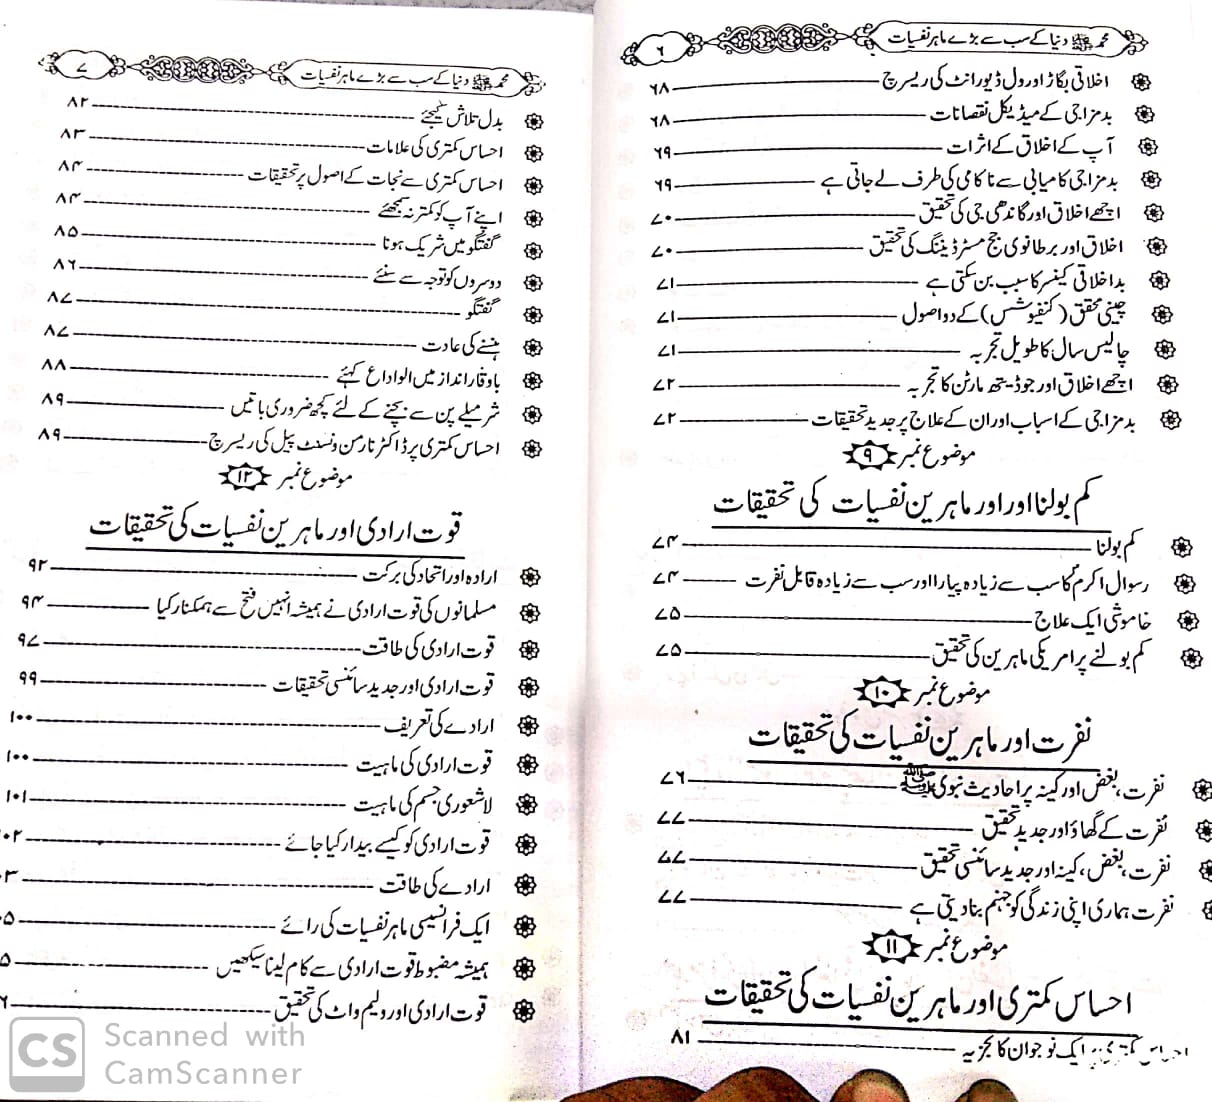 محمد ﷺ دنیا کے سب سے بڑے ماہر نفسیات
۶
اخلاقی بگاڑ اور ول ڈیورانٹ کی ریسرچ ۶۸
بدمزاجی کے میڈیکل نقصانات ۶۸
آپ کے اخلاق کے اثرات ۶۹
بدمزاجی کامیابی سے ناکامی کی طرف لے جاتی ہے ۶۹
اچھے اخلاق اور گاندھی جی کی تحقیق ۷۰
اخلاق اور برطانوی جج مسٹر ڈیننگ کی تحقیق ۷۰
بداخلاقی کینسر کا سبب بن سکتی ہے ۷۱
چینی محقق (کنفیوشس) کے دو اصول ۷۱
چالیس سال کا طویل تجربہ ۷۱
اچھے اخلاق اور جوڈ-یتھ مارٹن کا تجربہ ۷۲
بدمزاجی کے اسباب اور ان کے علاج پر جدید تحقیقات ۷۲
موضوع نمبر ۹
کم بولنا اور اور ماہرین نفسیات کی تحقیقات
کم بولنا ۷۴
رسوال اکرمؐ کا سب سے زیادہ پیارا اور سب سے زیادہ قابل نفرت ۷۴
خاموشی ایک علاج ۷۵
کم بولنے پر امریکی ماہرین کی تحقیق ۷۵
موضوع نمبر ۱۰
نفرت اور ماہرین نفسیات کی تحقیقات
نفرت، بغض اور کینہ پر احادیث نبوی ﷺ ۷۶
نفرت کے گھاؤ اور جدید تحقیق ۷۷
نفرت، بغض، کینہ اور جدید سائنسی تحقیق ۷۷
نفرت ہماری اپنی زندگی کو جہنم بنا دیتی ہے ۷۷
موضوع نمبر ۱۱
احساس کمتری اور ماہرین نفسیات کی تحقیقات
احساس کمتری پر ایک نوجوان کا تجزیہ ۸۱
محمد ﷺ دنیا کے سب سے بڑے ماہر نفسیات
۷
بدل تلاش کیجئے ۸۲
احساس کمتری کی علامات ۸۳
احساس کمتری سے نجات کے اصول پر تحقیقات ۸۴
اپنے آپ کو کمتر نہ سمجھئے ۸۴
گفتگو میں شریک ہونا ۸۵
دوسروں کو توجہ سے سنئے ۸۶
گفتگو ۸۷
ہنسنے کی عادت ۸۷
باوقار انداز میں الواداع کہئے ۸۸
شرمیلے پن سے بچنے کے لئے کچھ ضروری باتیں ۸۹
احساس کمتری پر ڈاکٹر نارمن ونسنٹ پیل کی ریسرچ ۸۹
موضوع نمبر ۱۲
قوت ارادی اور ماہرین نفسیات کی تحقیقات
ارادہ اور اتحاد کی برکت ۹۲
مسلمانوں کی قوت ارادی نے ہمیشہ انہیں فتح سے ہمکنار کیا ۹۴
قوت ارادی کی طاقت ۹۷
قوت ارادی اور جدید سائنسی تحقیقات ۹۹
ارادے کی تعریف ۱۰۰
قوت ارادی کی ماہیت ۱۰۰
لاشعوری جسم کی ماہیت ۱۰۱
قوت ارادی کو کیسے بیدار کیا جائے ۱۰۲
ارادے کی طاقت ۳
ایک فرانسیسی ماہر نفسیات کی رائے ۰۵
ہمیشہ مضبوط قوت ارادی سے کام لینا سیکھیں ۵
قوت ارادی اور ولیم واٹ کی تحقیق ۶
CS Scanned with
CamScanner